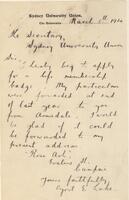 Sydney University Union,
The University
March 8th 1920
The Secretary,
Sydney University Union
Sir
I hereby beg to apply
for a life membership
badge. My particulars
were forwarded at end
of last year to you
from Armidale. I would
be glad if it could
be forwarded to my
present address
Evaline St.
Campsie
Yours faithfully,
Cyril E.